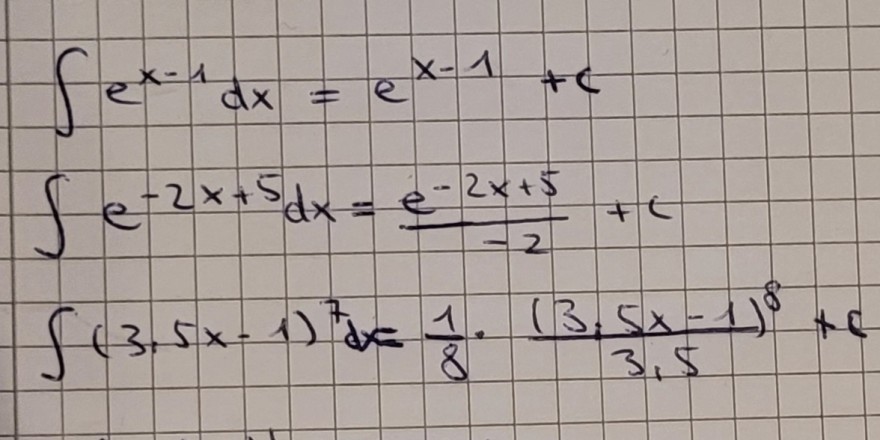 ∫ e^(x-1) dx = e^(x-1) + c
∫ e^(-2x+5) dx = e^(-2x+5) / -2 + c
∫ (3,5x-1)^7 dx = 1/8 · (3,5x-1)^8 / 3,5 + c